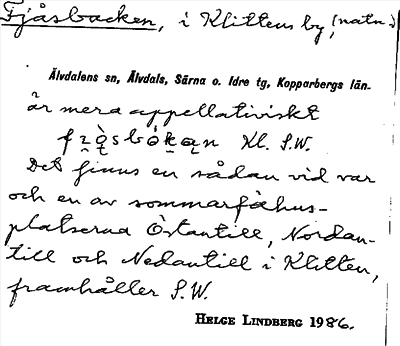 Fjåsbacken, i Klittens by, (natn)
Älvdalens sn, Älvdals, Särna o. Idre tg, Kopparbergs län.
är mera appellativiskt
Kl. S.W.
Det finns en sådan vid var
och en av sommarfähus-
platserna Östantill, Nordan-
till och Nedantill i Klitten,
framhåller S.W.
HELGE LINDBERG 1986.